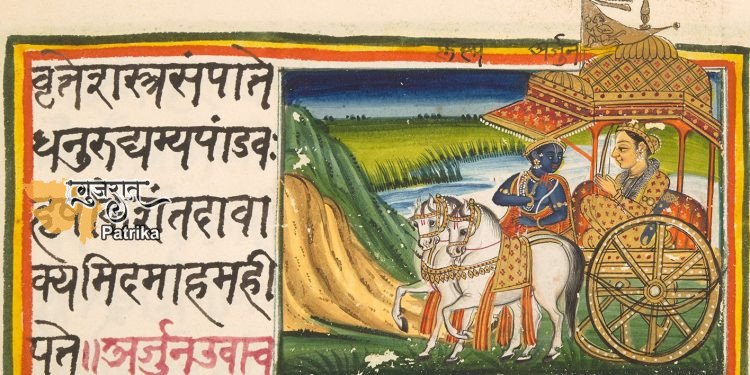 कृष्ण अर्जुन
वृत्तेशस्त्रसंपाते
धनुरुद्यम्यपांडवः
शंतदावा
क्यमिदमाहमही
पते॥अर्जुनउवाच
ગુજરાત
Patrika